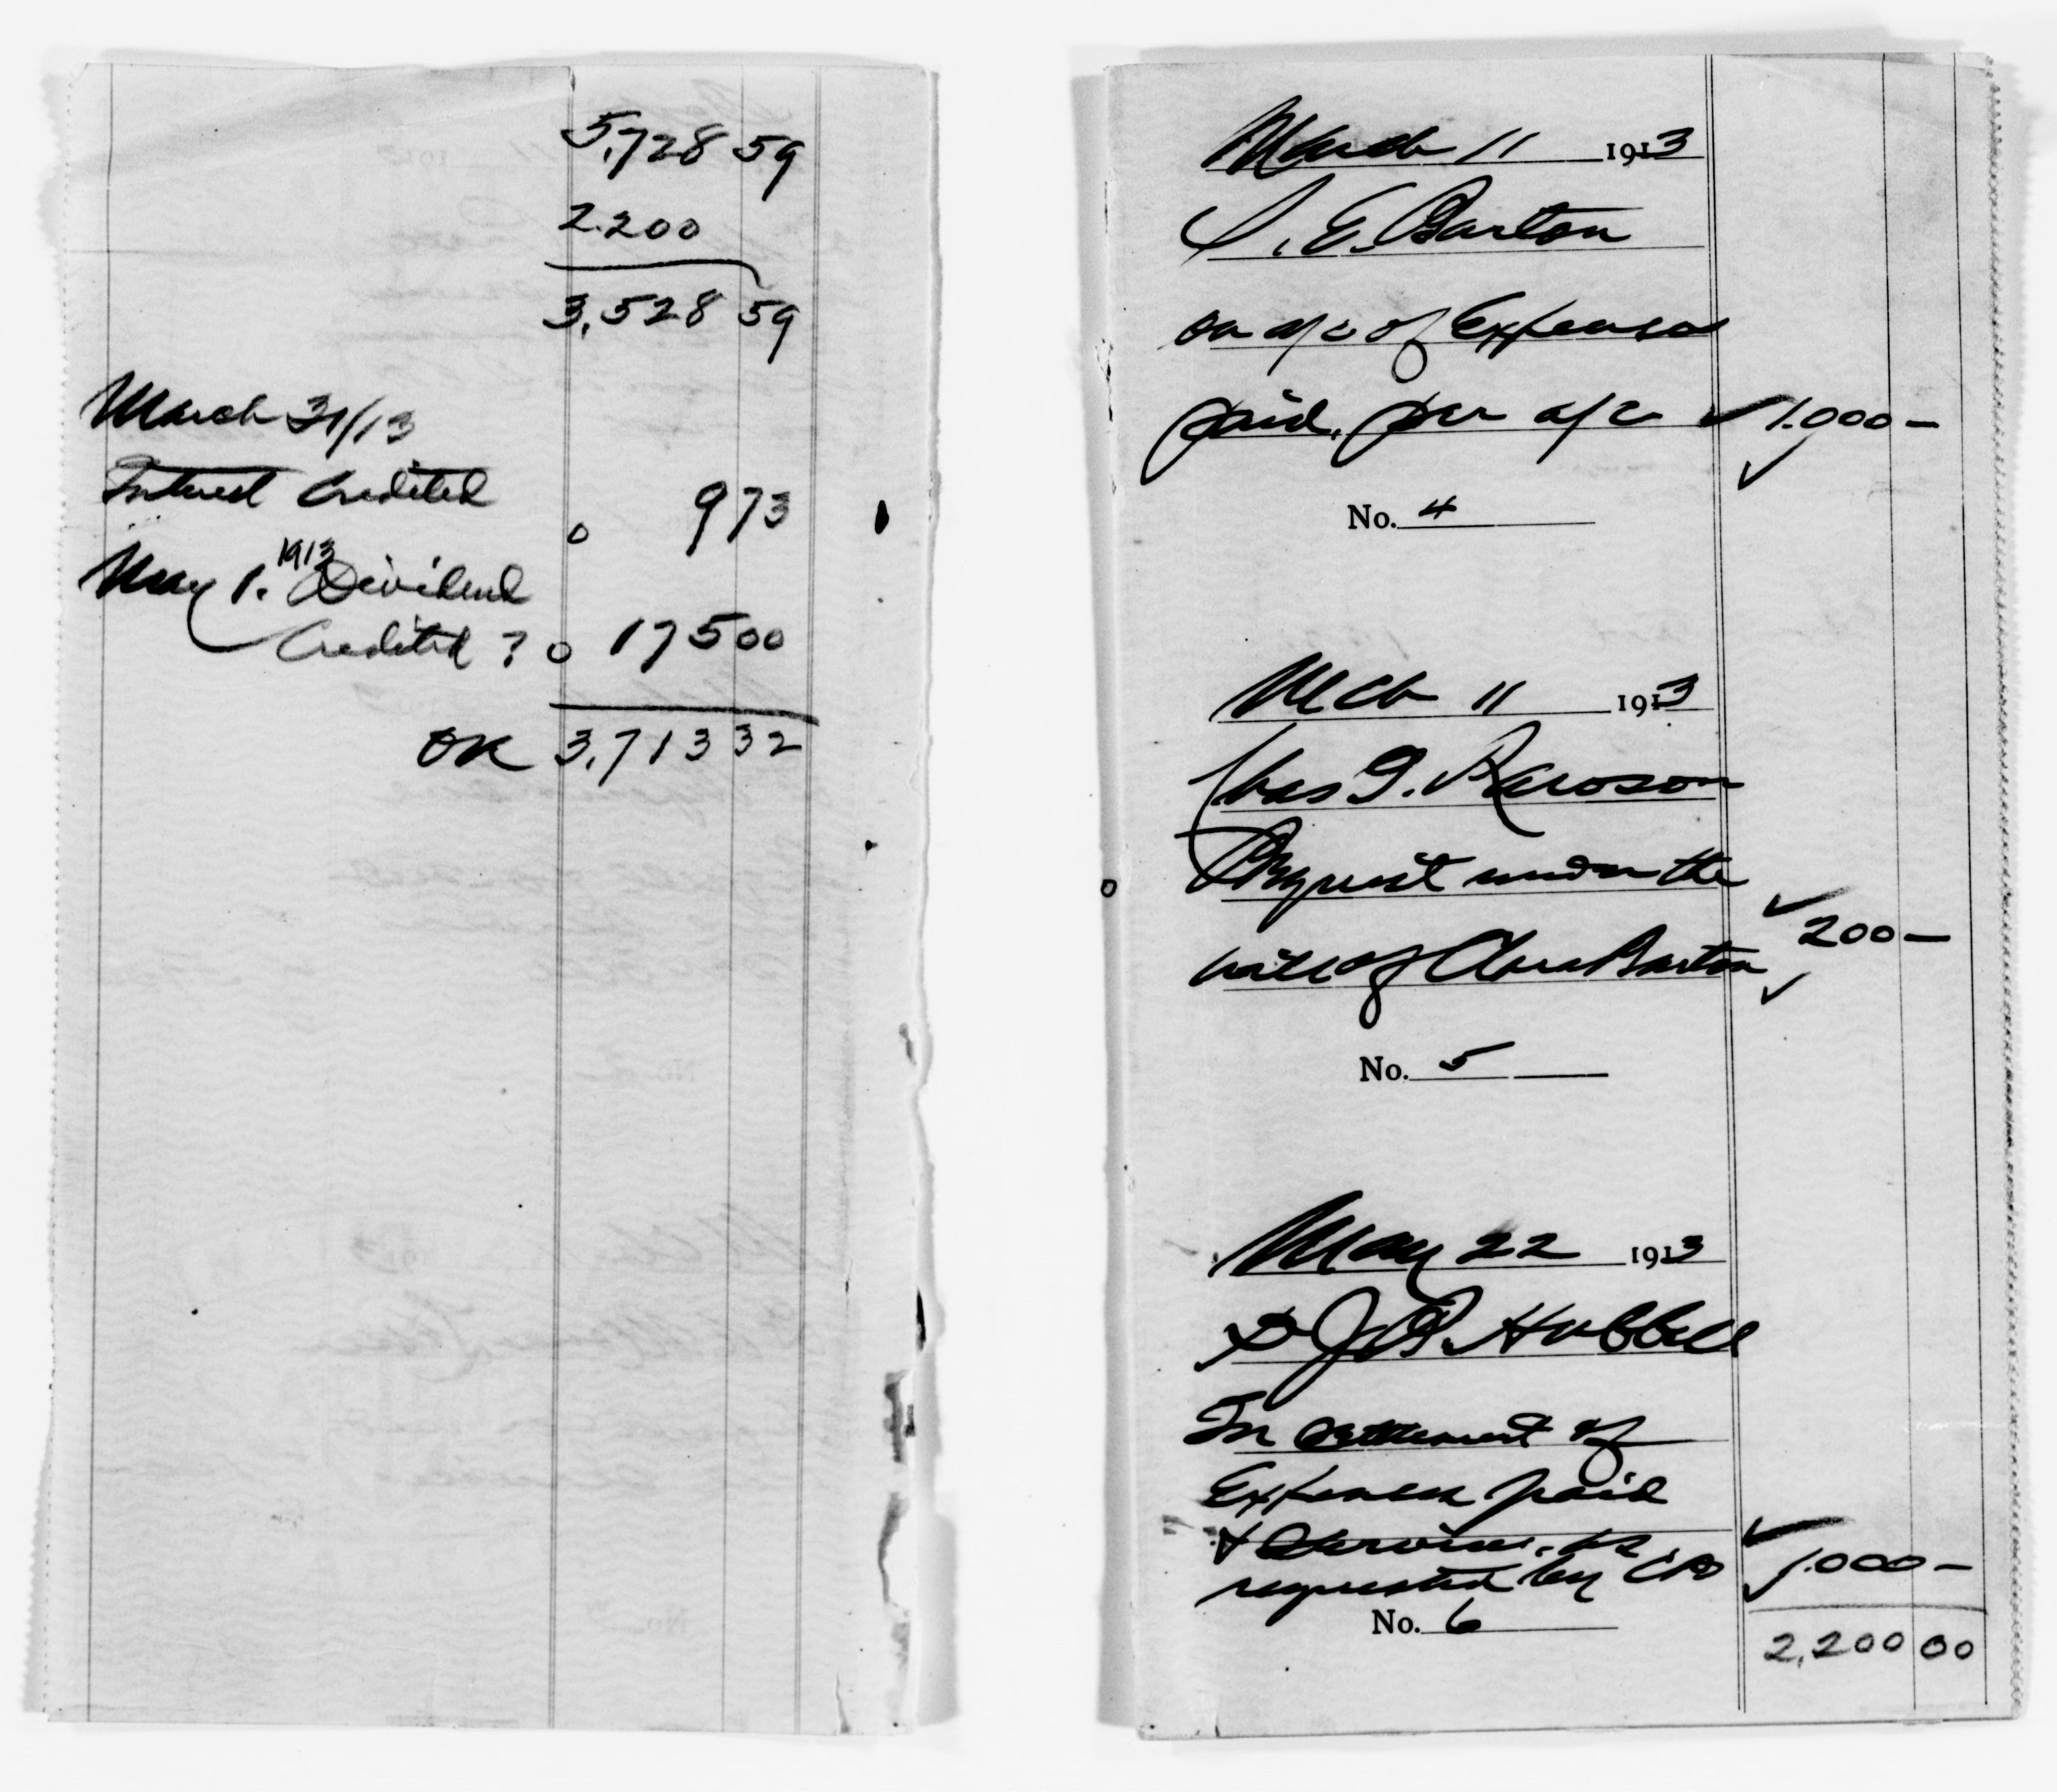 5,728 59
2.200
3,528 59
March 31/13
Interest Credited
o 9 73
1913
May 1. Dividend
Credited ? o 175 00
OK 3,713 32
March 11 1913
S. E. Barton
on a/c of Expenses
paid, per a/c ✓ 1.000 –
✓
No. 4
Mch 11 1913
Chas I.
Bequest under the
✓ 200 –
will of Clara Barton
✓
No. 5
May 22 1913
Dr J B. Hubbell
In settlement of
Expenses paid
✓
& Services, as
requested by CB ✓ 1.000 –
No. 6
2,200 00